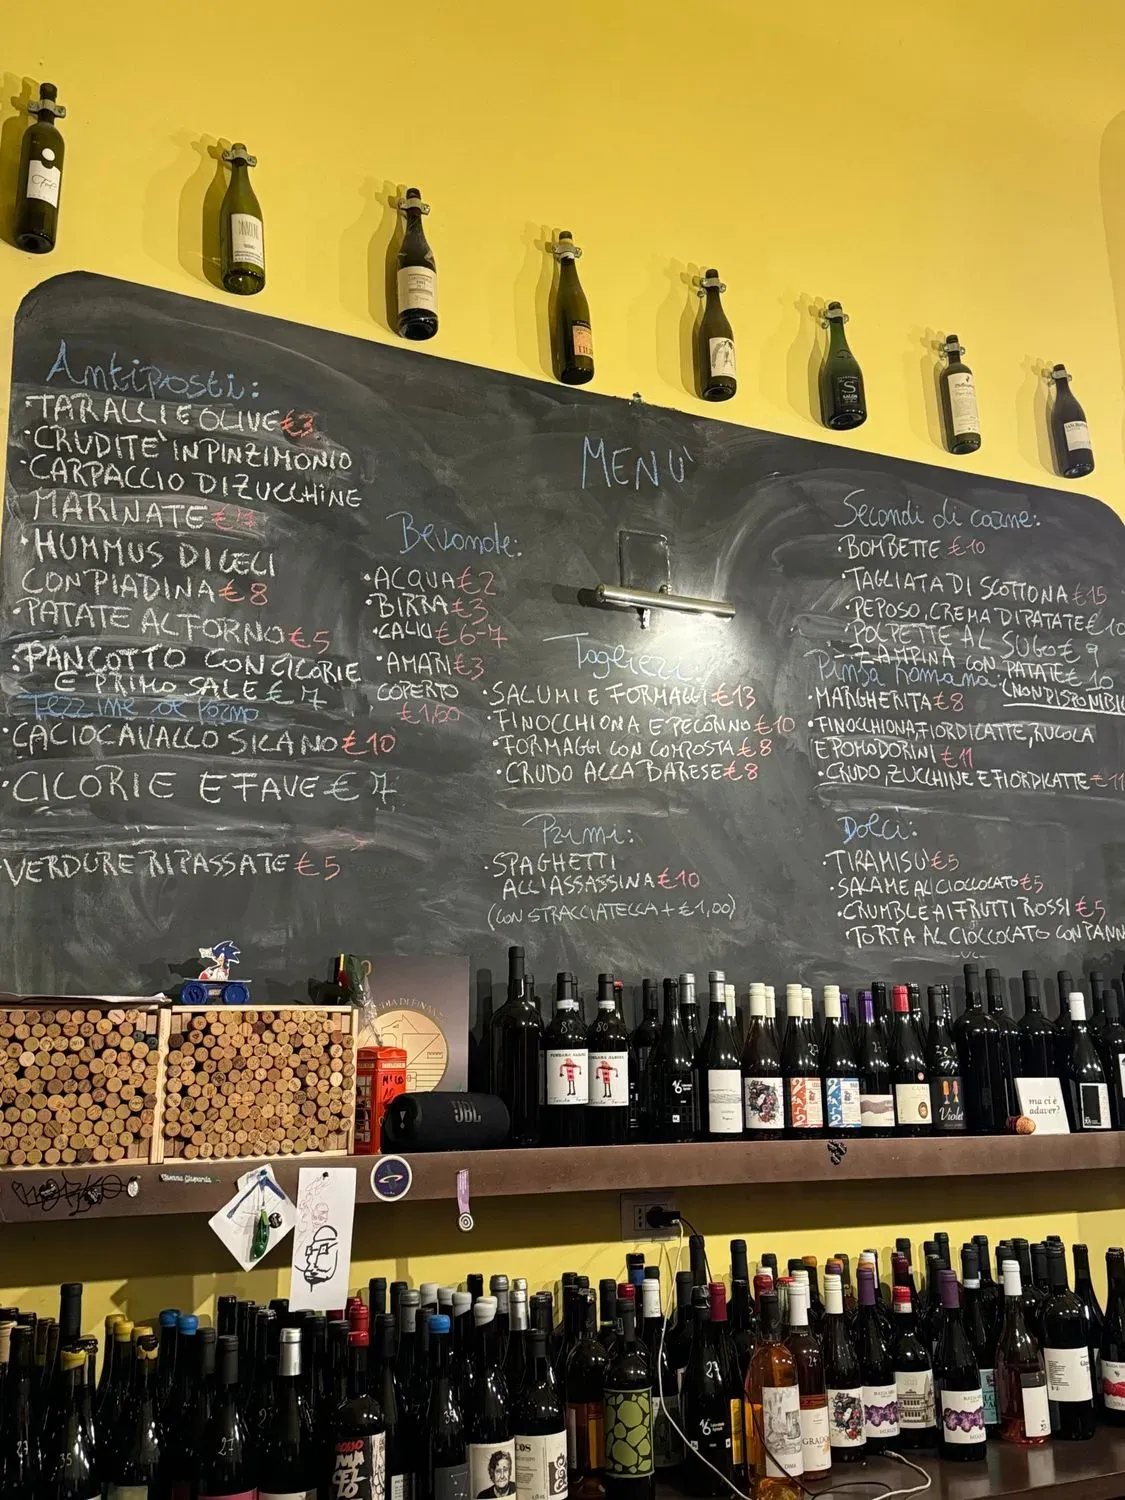 Antipasti:
·TARALLI E OLIVE €3
·CRUDITE' IN PINZIMONIO
·CARPACCIO DI ZUCCHINE
MARINATE
·HUMMUS DI CECI
CON PIADINA €8
·PATATE AL FORNO €5
·PANCOTTO CON CICORIE
E PRIMO SALE € 7
·CACIOCAVALLO SILANO €10
·CICORIE E FAVE € 7
·VERDURE RIPASSATE €5
Bevande:
·ACQUA €2
·BIRRA €3
·CALICI €6-7
·AMARI €3
COPERTO
MENU'
Taglieri:
·SALUMI E FORMAGGI €13
·FINOCCHIONA E PECORINO €10
·FORMAGGI CON COMPOSTA €8
·CRUDO ALLA BARESE €8
Primi:
·SPAGHETTI
ALL'ASSASSINA €10
(CON STRACCIATELLA + €1,00)
Secondi di carne:
·BOMBETTE €10
·TAGLIATA DI SCOTTONA €15
·PEPOSO, CREMA DI PATATE €10
·POLPETTE AL SUGO € 9
·ZAMPINA CON PATATE € 10
Pinsa Romana:
(NON DISPONIBIL
·MARGHERITA €8
·FINOCCHIONA FIORDILATTE, RUCOLA
E POMODORINI €11
·CRUDO, ZUCCHINE E FIORDILATTE €11
Dolci:
·TIRAMISU' €5
·SALAME AL CIOCCOLATO €5
·CRUMBLE AI FRUTTI ROSSI €5
·TORTA AL CIOCCOLATO CON PANN
JBL
ma ci è
adaver?
Violet
S
SALON
16
23
35
27
24
GRADO